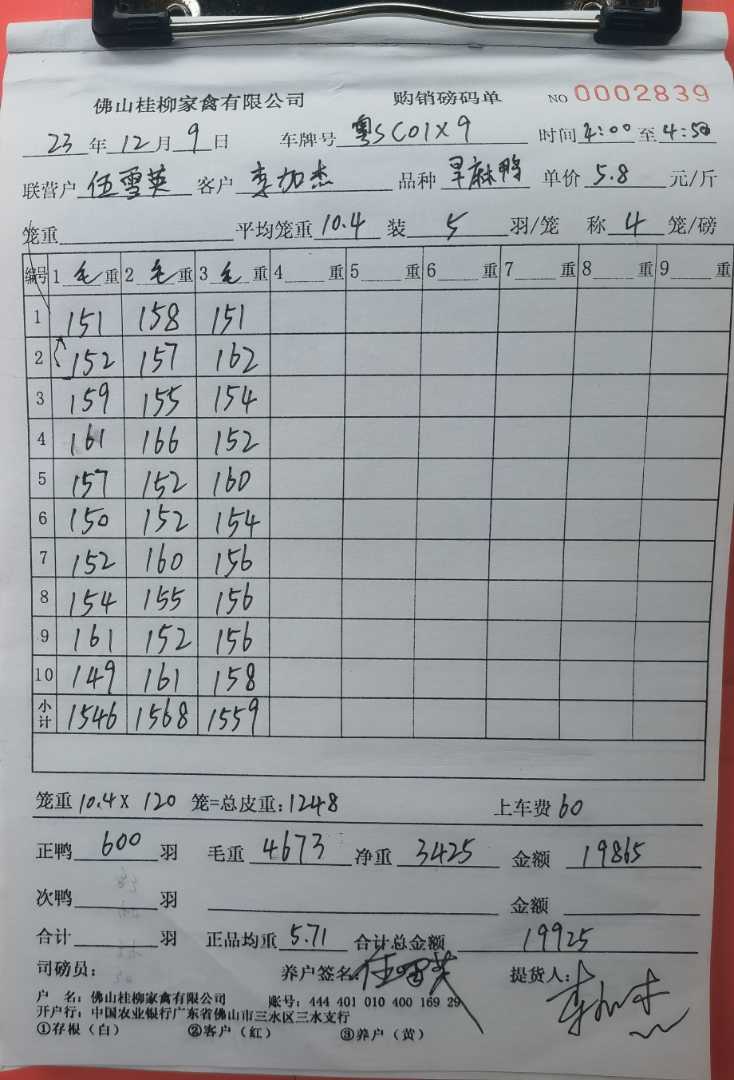 佛山桂柳家禽有限公司 购销磅码单 NO 0002839
23 年 12 月 9 日 车牌号 粤SC01X9 时间 4:00 至 4:50
联营户 伍雪英 客户 李加杰 品种 旱麻鸭 单价 5.8 元/斤
笼重 平均笼重 10.4 装 5 羽/笼 称 4 笼/磅
编号 1 毛 重 2 毛 重 3 毛 重 4 重 5 重 6 重 7 重 8 重 9 重
1 151 158 151
2 152 157 162
3 159 155 154
4 161 166 152
5 157 152 160
6 150 152 154
7 152 160 156
8 154 155 156
9 161 152 156
10 149 161 158
小计 1546 1568 1559
笼重 10.4 X 120 笼=总皮重: 1248 上车费 60
正鸭 600 羽 毛重 4673 净重 3425 金额 19865
次鸭 羽 金额
合计 羽 正品均重 5.71 合计总金额 19925
司磅员: 养户签名: 伍雪英 提货人: 李加杰
户 名: 佛山桂柳家禽有限公司 账号: 444 401 010 400 169 29
开户行: 中国农业银行广东省佛山市三水区三水支行
①存根(白) ②客户(红) ③养户(黄)